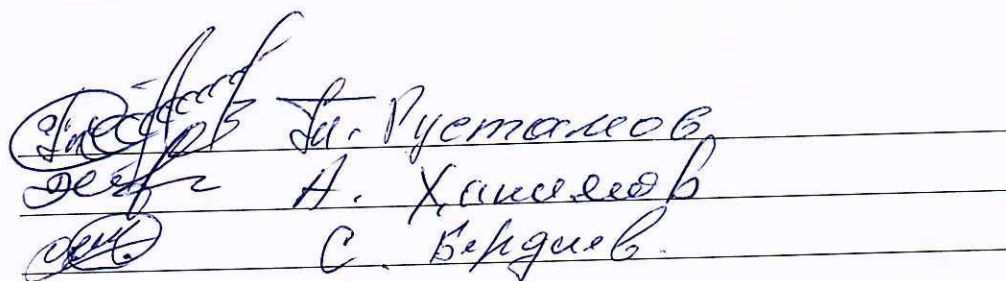 Рустамов
А. Хакимов
С. Бердиев.